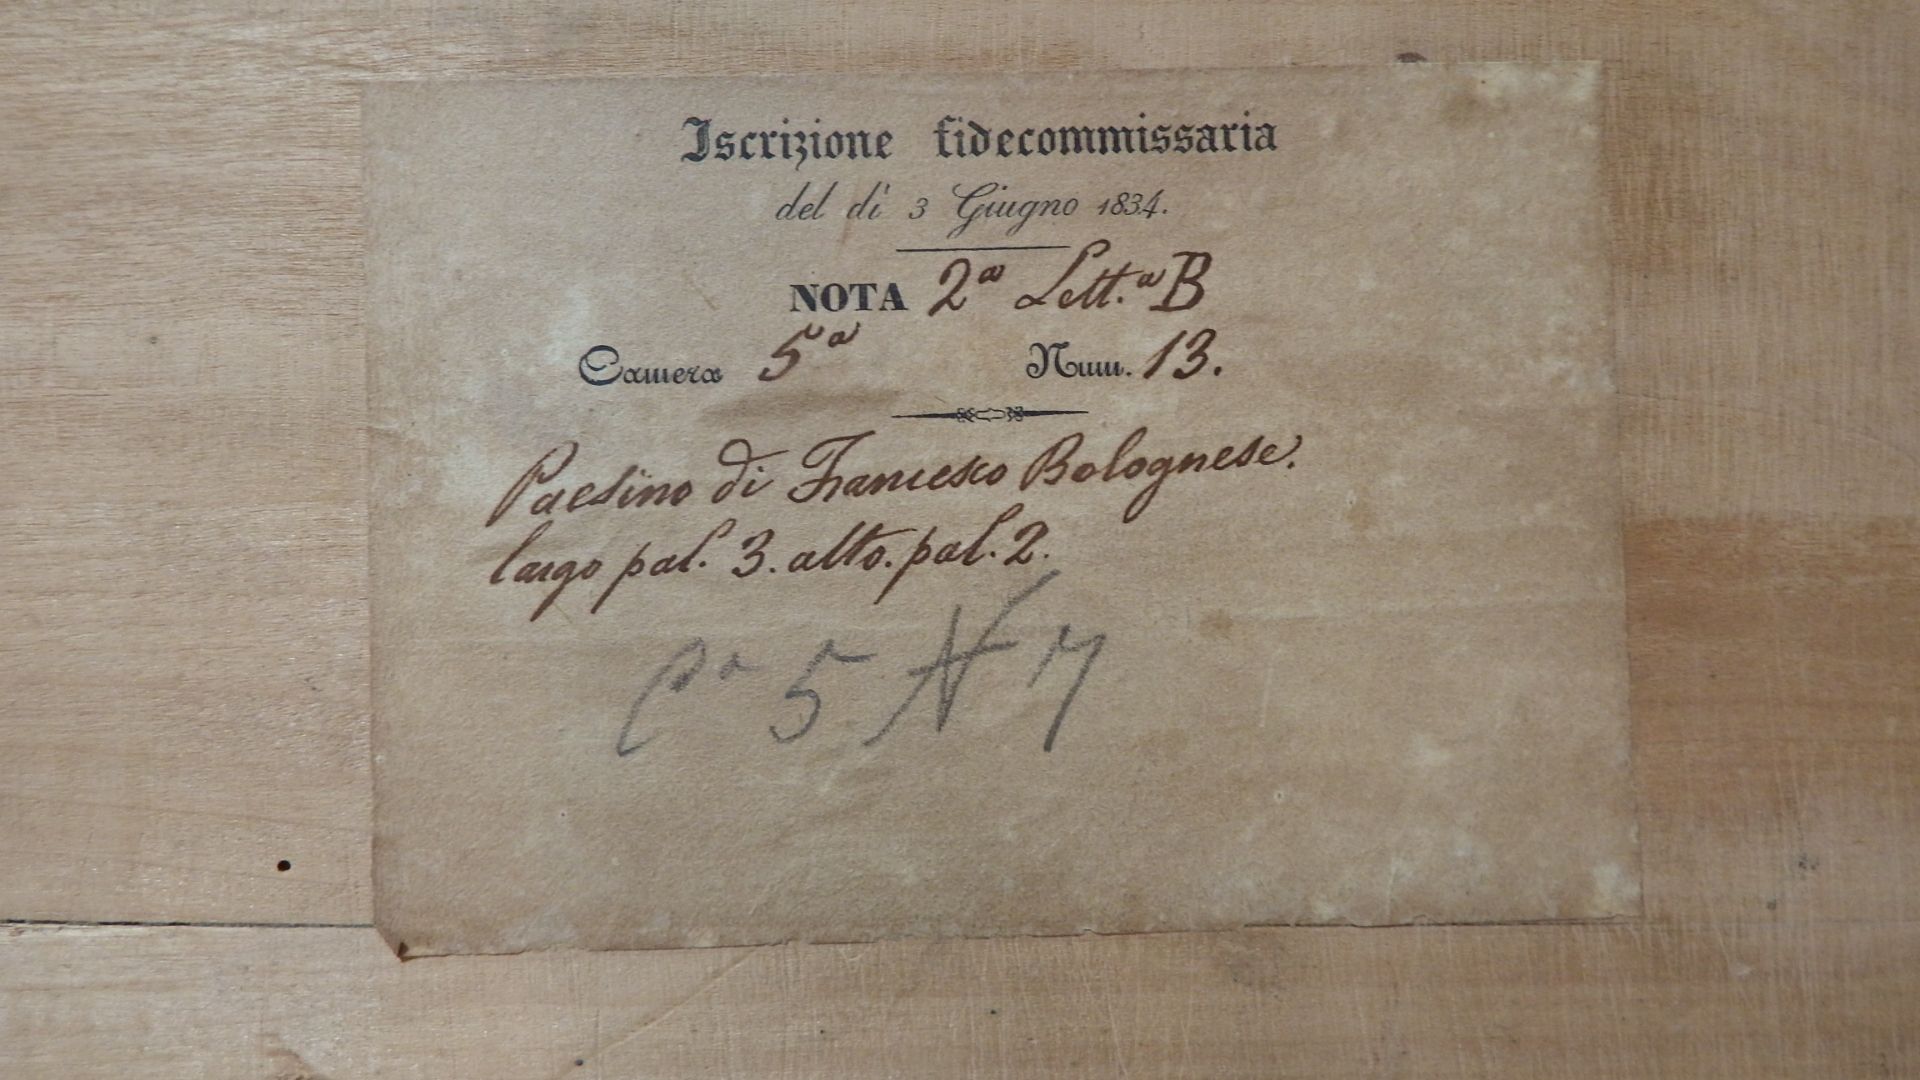 Iscrizione fidecommissaria
del dì 3 Giugno 1834.
NOTA 2ª Lett.ª B
Camera 5ª Num. 13.
Paesino di Francesco Bolognese.
largo pal. 3. alto. pal. 2.
Cª 5 N 17